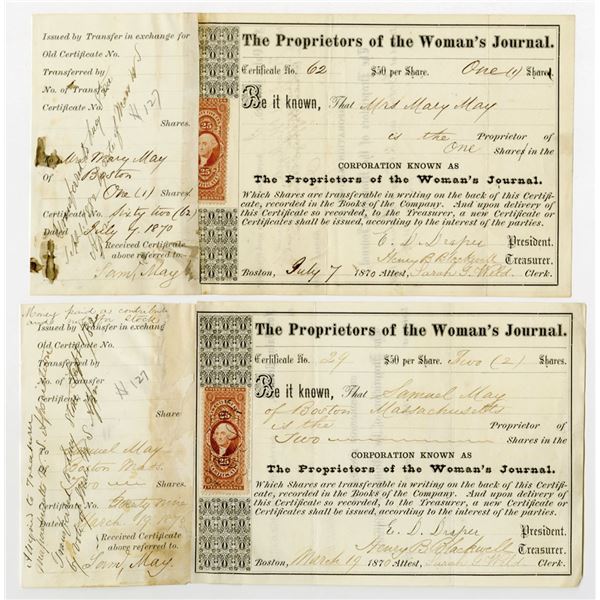 Issued by Transfer in exchange for
Old Certificate No.
Transferred by
No. of Transfer
Certificate No.
Shares.
To Mrs Mary May
Of Boston
One (1) Shares
Certificate No. Sixty two (62)
Dated July 7 1870
Received Certificate
above referred to.
Sam. May
# 127
The Proprietors of the Woman's Journal.
Certificate No. 62 $50 per Share. One (1) Shares
Be it known, That Mrs Mary May
is the Proprietor of
One Shares in the
CORPORATION KNOWN AS
The Proprietors of the Woman's Journal.
Which Shares are transferable in writing on the back of this Certifi-
cate, recorded in the Books of the Company. And upon delivery of
this Certificate so recorded, to the Treasurer, a new Certificate or
Certificates shall be issued, according to the interest of the parties.
E. D. Draper President.
Henry B Blackwell Treasurer.
Boston, July 7 1870 Attest, Sarah G. Wild Clerk.
25
25
Money paid as contribution
and not for Stock
Issued by Transfer in exchange
Old Certificate No.
Transferred by
No. of Transfer
Certificate No.
Share
To Samuel May
Boston Mass.
Two Shares.
Certificate No. Twenty nine
Dated March 19 1870
Received Certificate
above referred to.
Sam. May.
# 127
The Proprietors of the Woman's Journal.
Certificate No. 29 $50 per Share. Two (2) Shares.
Be it known, That Samuel May
of Boston Massachusetts
is the Proprietor of
Two Shares in the
CORPORATION KNOWN AS
The Proprietors of the Woman's Journal.
Which Shares are transferable in writing on the back of this Certifi-
cate, recorded in the Books of the Company. And upon delivery of
this Certificate so recorded, to the Treasurer, a new Certificate or
Certificates shall be issued, according to the interest of the parties.
E. D. Draper President.
Henry B Blackwell Treasurer.
Boston, March 19 1870 Attest, Sarah G. Wild Clerk.
25
25